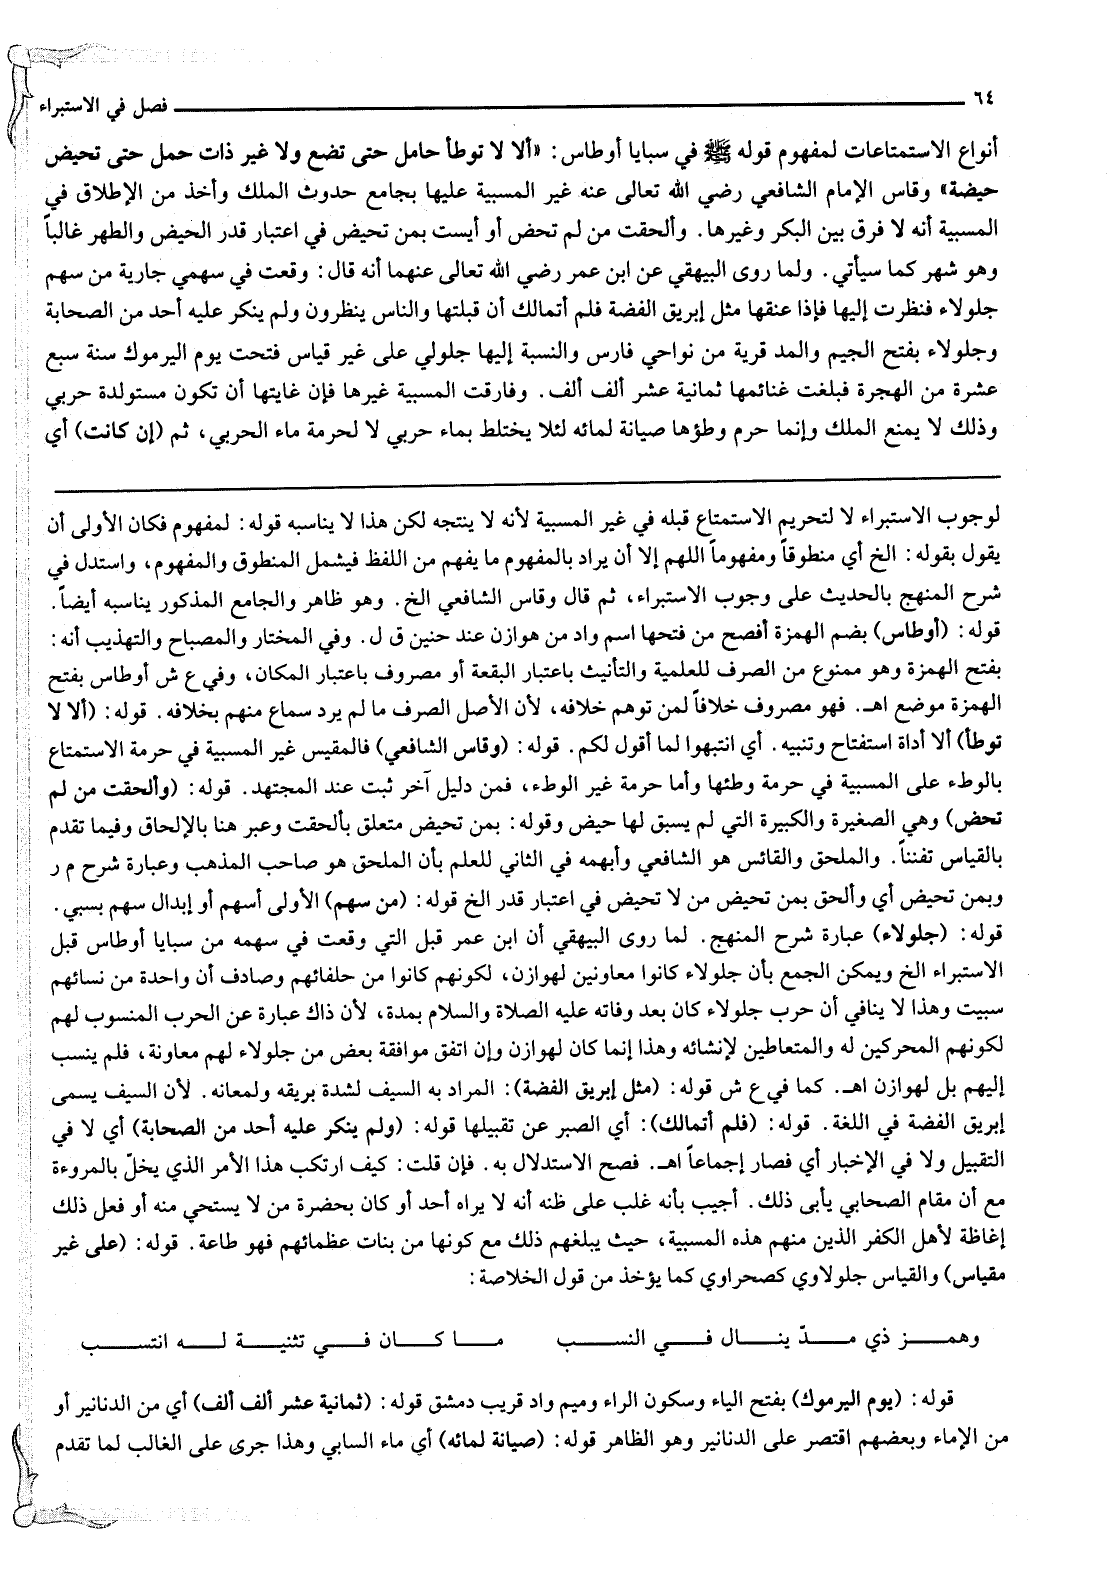 ٦٤
فصل في الاستبراء
أنواع الاستمتاعات لمفهوم قوله ﷺ في سبايا أوطاس: «ألا لا توطأ حامل حتى تضع ولا غير ذات حمل حتى تحيض
حيضة» وقاس الإمام الشافعي رضي الله تعالى عنه غير المسبية عليها بجامع حدوث الملك وأخذ من الإطلاق في
المسبية أنه لا فرق بين البكر وغيرها. وألحقت من لم تحض أو أيست بمن تحيض في اعتبار قدر الحيض والطهر غالباً
وهو شهر كما سيأتي. ولما روى البيهقي عن ابن عمر رضي الله تعالى عنهما أنه قال: وقعت في سهمي جارية من سهم
جلولاء فنظرت إليها فإذا عنقها مثل إبريق الفضة فلم أتمالك أن قبلتها والناس ينظرون ولم ينكر عليه أحد من الصحابة
وجلولاء بفتح الجيم والمد قرية من نواحي فارس والنسبة إليها جلولي على غير قياس فتحت يوم اليرموك سنة سبع
عشرة من الهجرة فبلغت غنائمها ثمانية عشر ألف ألف. وفارقت المسبية غيرها فإن غايتها أن تكون مستولدة حربي
وذلك لا يمنع الملك وإنما حرم وطؤها صيانة لمائه لئلا يختلط بماء حربي لا لحرمة ماء الحربي، ثم (إن كانت) أي
لوجوب الاستبراء لا لتحريم الاستمتاع قبله في غير المسبية لأنه لا ينتجه لكن هذا لا يناسبه قوله: لمفهوم فكان الأولى أن
يقول بقوله: الخ أي منطوقاً ومفهوماً اللهم إلا أن يراد بالمفهوم ما يفهم من اللفظ فيشمل المنطوق والمفهوم، واستدل في
شرح المنهج بالحديث على وجوب الاستبراء، ثم قال وقاس الشافعي الخ. وهو ظاهر والجامع المذكور يناسبه أيضاً.
قوله: (أوطاس) بضم الهمزة أفصح من فتحها اسم واد من هوازن عند حنين ق ل. وفي المختار والمصباح والتهذيب أنه:
بفتح الهمزة وهو ممنوع من الصرف للعلمية والتأنيث باعتبار البقعة أو مصروف باعتبار المكان، وفي ع ش أوطاس بفتح
الهمزة موضع اهـ. فهو مصروف خلافاً لمن توهم خلافه، لأن الأصل الصرف ما لم يرد سماع منهم بخلافه. قوله: (ألا لا
توطأ) ألا أداة استفتاح وتنبيه. أي انتبهوا لما أقول لكم. قوله: (وقاس الشافعي) فالمقيس غير المسبية في حرمة الاستمتاع
بالوطء على المسبية في حرمة وطئها وأما حرمة غير الوطء، فمن دليل آخر ثبت عند المجتهد. قوله: (وألحقت من لم
تحض) وهي الصغيرة والكبيرة التي لم يسبق لها حيض وقوله: بمن تحيض متعلق بألحقت وعبر هنا بالإلحاق وفيما تقدم
بالقياس تفنناً. والملحق والقائس هو الشافعي وأبهمه في الثاني للعلم بأن الملحق هو صاحب المذهب وعبارة شرح م ر
وبمن تحيض أي وألحق بمن تحيض من لا تحيض في اعتبار قدر الخ قوله: (من سهم) الأولى أسهم أو إبدال سهم بسبي.
قوله: (جلولاء) عبارة شرح المنهج. لما روى البيهقي أن ابن عمر قبل التي وقعت في سهمه من سبايا أوطاس قبل
الاستبراء الخ ويمكن الجمع بأن جلولاء كانوا معاونين لهوازن، لكونهم كانوا من حلفائهم وصادف أن واحدة من نسائهم
سبيت وهذا لا ينافي أن حرب جلولاء كان بعد وفاته عليه الصلاة والسلام بمدة، لأن ذاك عبارة عن الحرب المنسوب لهم
لكونهم المحركين له والمتعاطين لإنشائه وهذا إنما كان لهوازن وإن اتفق موافقة بعض من جلولاء لهم معاونة، فلم ينسب
إليهم بل لهوازن اهـ. كما في ع ش قوله: (مثل إبريق الفضة): المراد به السيف لشدة بريقه ولمعانه. لأن السيف يسمى
إبريق الفضة في اللغة. قوله: (فلم أتمالك): أي الصبر عن تقبيلها قوله: (ولم ينكر عليه أحد من الصحابة) أي لا في
التقبيل ولا في الإخبار أي فصار إجماعاً اهـ. فصح الاستدلال به. فإن قلت: كيف ارتكب هذا الأمر الذي يخلّ بالمروءة
مع أن مقام الصحابي يأبى ذلك. أجيب بأنه غلب على ظنه أنه لا يراه أحد أو كان بحضرة من لا يستحي منه أو فعل ذلك
إغاظة لأهل الكفر الذين منهم هذه المسبية، حيث يبلغهم ذلك مع كونها من بنات عظمائهم فهو طاعة. قوله: (على غير
مقياس) والقياس جلولاوي كصحراوي كما يؤخذ من قول الخلاصة:
وهمـز ذي مـدّ ينـال فـي النسـب مـا كـان فـي تثنيـة لـه انتسـب
قوله: (يوم اليرموك) بفتح الياء وسكون الراء وميم واد قريب دمشق قوله: (ثمانية عشر ألف ألف) أي من الدنانير أو
من الإماء وبعضهم اقتصر على الدنانير وهو الظاهر قوله: (صيانة لمائه) أي ماء السابي وهذا جرى على الغالب لما تقدم